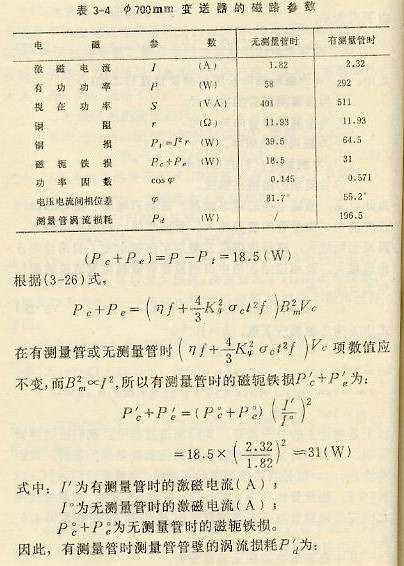 表 3-4 φ700mm 变送器的磁路参数
电 磁 参 数 无测量管时 有测量管时
激磁电流 I (A) 1.82 2.32
有功功率 P (W) 58 292
视在功率 S (VA) 401 511
铜阻 r (Ω) 11.93 11.93
铜损 Pt=I²r (W) 39.5 64.5
磁轭铁损 Pc+Pe (W) 18.5 31
功率因数 cosφ 0.145 0.571
电压电流间相位差 φ 81.7° 55.2°
测量管涡流损耗 Pd (W) / 196.5
(Pc+Pe)=P-Pt=18.5(W)
根据(3-26)式,
Pc+Pe=(ηf+4/3K²φσct²f)B²mVc
在有测量管或无测量管时(ηf+4/3K²φσct²f)Vc项数值应
不变,而B²m∝I²,所以有测量管时的磁轭铁损P′c+P′e为:
P′c+P′e=(P°c+P°e)(I′/I°)²
=18.5×(2.32/1.82)²≈31(W)
式中: I′为有测量管时的激磁电流(A);
I°为无测量管时的激磁电流(A);
P°c+P°e为无测量管时的磁轭铁损。
因此,有测量管时测量管管壁的涡流损耗P′d为: